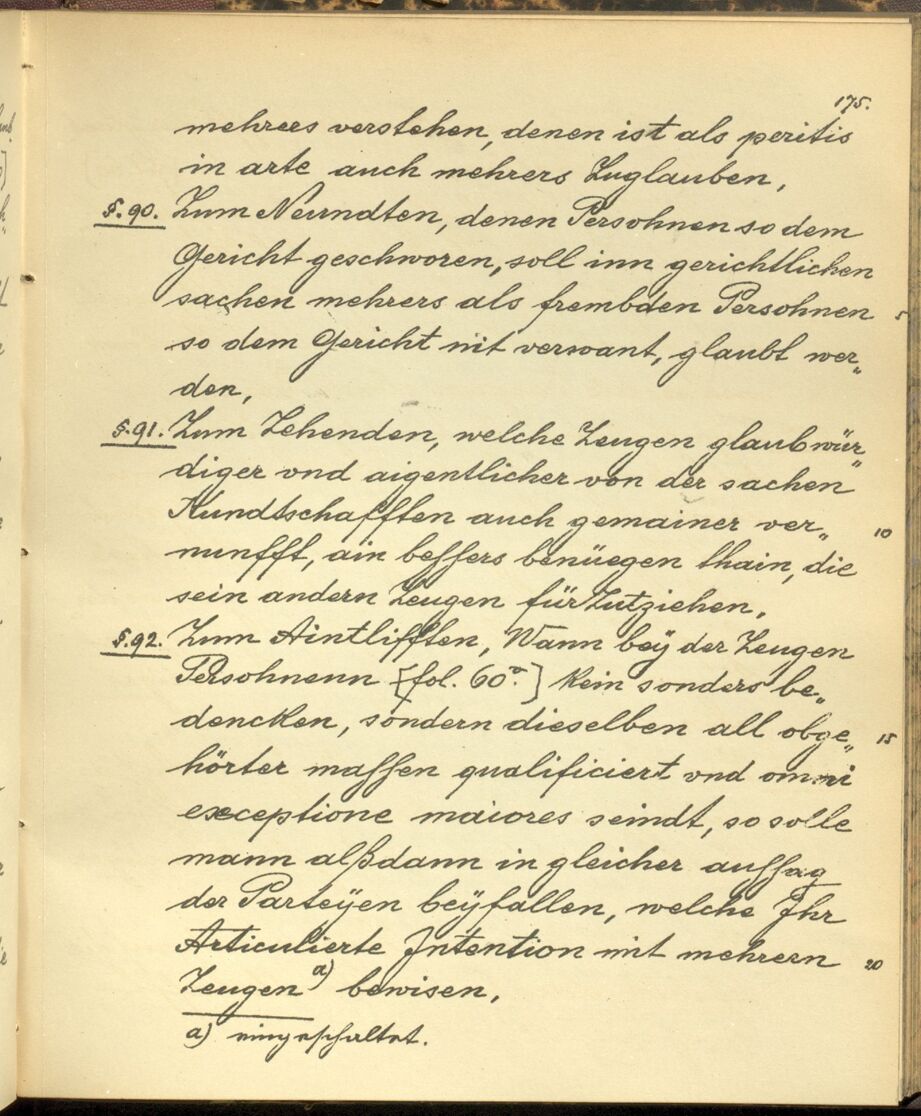 175.
mehrers verstehen, denen ist als peritis
in arte auch mehrers Zuglauben,
§. 90. Zum Neundten, denen Persohnen so dem
Gericht geschworen, soll inn gerichtlichen
sachen mehrers als frembden Persohnen 5
so dem Gericht nit verwant, glaubt wer„
den,
§. 91. Zum Zehenden, welche Zeugen glaubwür„
diger vnd aigentlicher von der sachen
Kundtschafften auch gemainer ver„ 10
nunfft, ain bessers benüegen thain, die
sein andern Zeugen für Zutziehen,
§. 92. Zum Aintlifften, Wann beÿ der Zeugen
Persohnenn [fol. 60a.] kein sonders be„
dencken, sondern dieselben all obge„ 15
hörter massen qualificiert vnd omni
exceptione maiores seindt, so solle
mann alßdann in gleicher aussag
der Parteÿen beÿfallen, welche Ihr
Articulierte Intention mit mehrern 20
Zeugen a) bewisen,
a) eingeschaltet.